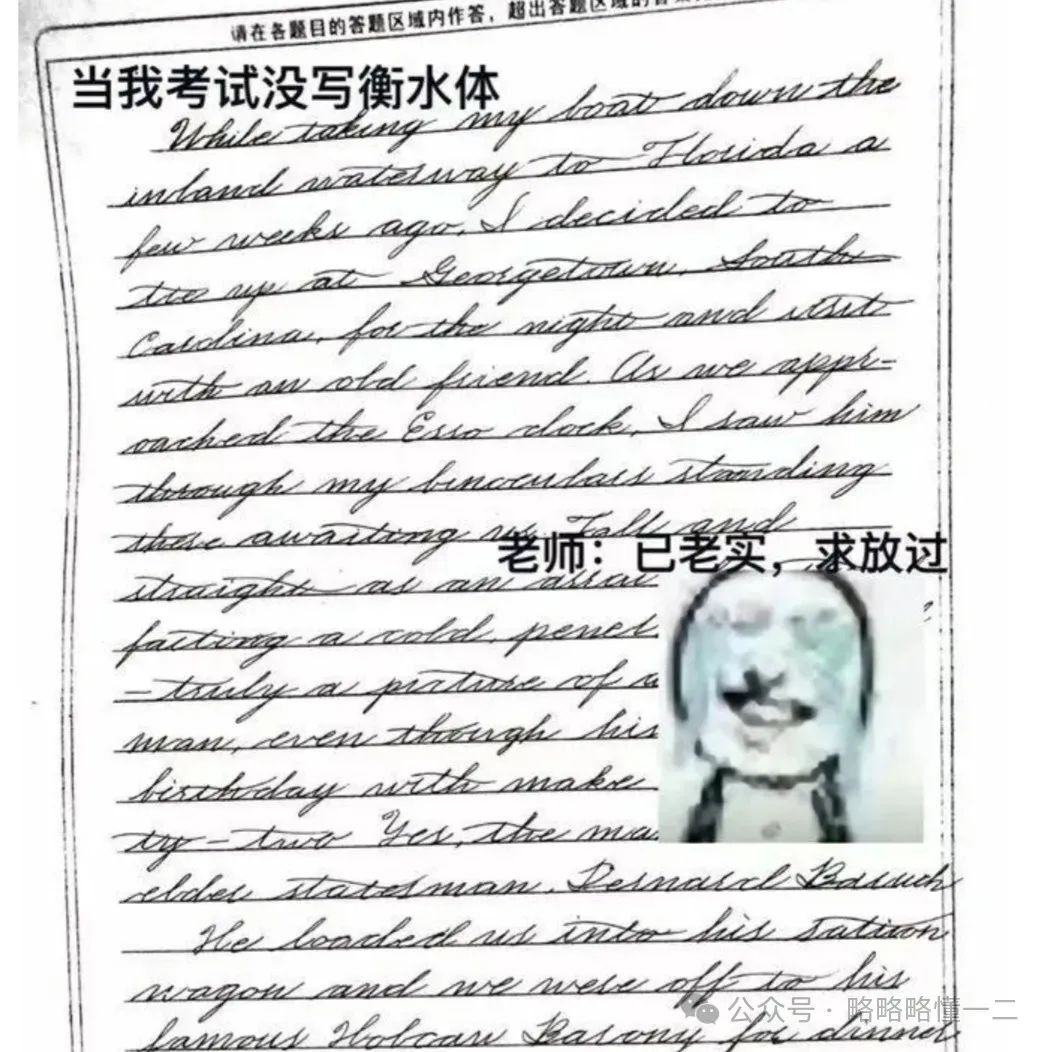 请在各题目的答题区域内作答，超出答题区域的答案
当我考试没写衡水体
While taking my boat down the
inland waterway to Florida a
few weeks ago, I decided to
tie up at Georgetown, South
Carolina, for the night and visit
with an old friend. As we appr-
oached the Esso dock, I saw him
through my binoculars standing
there awaiting us. Tall and
老师：已老实，求放过
straight as an arrow
facting a cold, penet
-truly a picture of a
man, even though his
birthday with make
ty-two Yes, the ma
elder statesman, Bernard Baruch
He loaded us into his sation
wagon and we were off to his
famous Hobcaw Barony for dinner
公众号·略略略懂一二